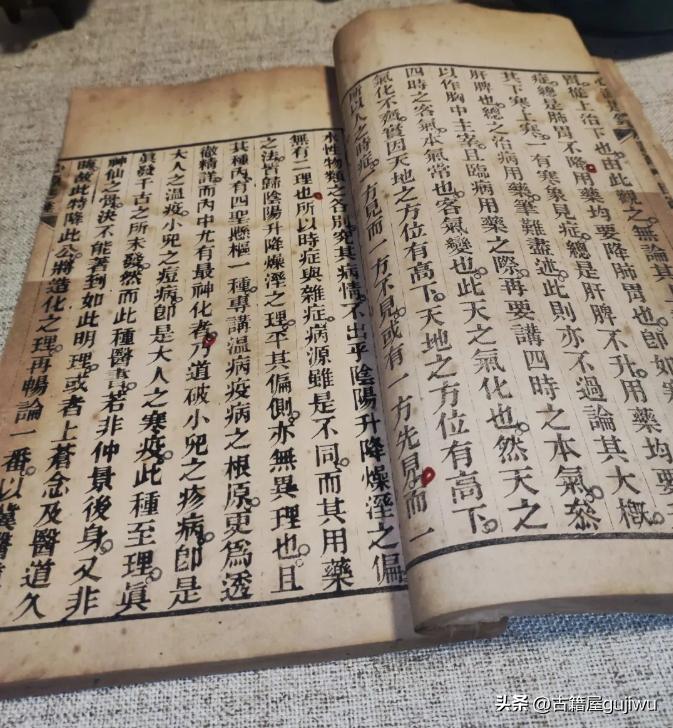 之無論其
胃從上治下也由此觀之無論其
症總是肺胃不降用藥均要降肺胃也卽如寒
其下寒上寒一有寒象見症總是肝脾不升用藥均要
肝脾也總之治病用藥筆難盡述此則亦不過論其大概
以作胸中主宰且臨病用藥之際再要講四時之本氣叅
四時之客氣本氣常也客氣變也此天之氣化也然天之
氣化不齊實因天地之方位有高下天地之方位有高下
所以人之時症一方見而一方不見或有一方先見而一
水性物類之各別究其病情不出乎陰陽升降燥溼之偏
無有二理也所以時症與雜症病源雖是不同而其用藥
之法皆歸陰陽升降燥溼之理平其偏側亦無異理也且
其種內有四聖懸樞一種專講溫病疫病之根原更爲透
徹精詳而內中尤有最神化者乃道破小兒之疹病卽是
大人之溫疫小兒之痘病卽是大人之寒疫此種至理眞
眞發千古之所未發然而此種醫書若非仲景後身又非
神仙之質決不能著到如此明理或者上蒼念及醫道久
晦故此特降此公將造化之理再暢論一番以冀醫
头条 @古籍屋gujiwu